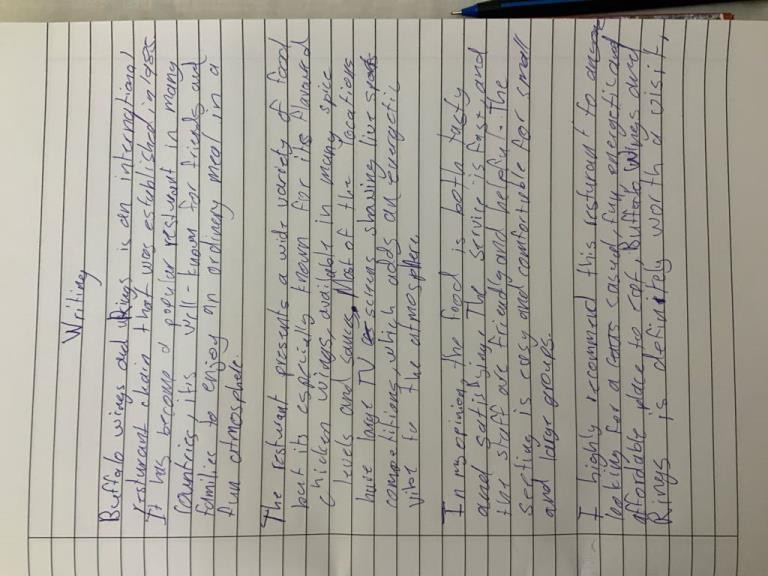 Writing
Buffalo wings and Rings is an international
resturant chain that was established in 1988.
It has become a popular resturant in many
countries, it's well-known for friends and
families to enjoy an ordinary meal in a
fun atmosphere.
The resturant presents a wide variety of food
but its especially known for its flavoured
chicken wings, available in many spice
levels and sauces. Most of the locations
have large TV screens showing live sports
competitions, which adds an energetic
vibe to the atmosphere.
In my opinion, the food is both tasty
and satisfying. The service is fast and
the staff are friendly and helpful. The
seeting is easy and comfortable for small
and larger groups.
I highly recommend this resturant to anyone
looking for a casual, fun, energetic and
affordable place to eat, Buffalo Wings and
Rings is definitely worth a visit.